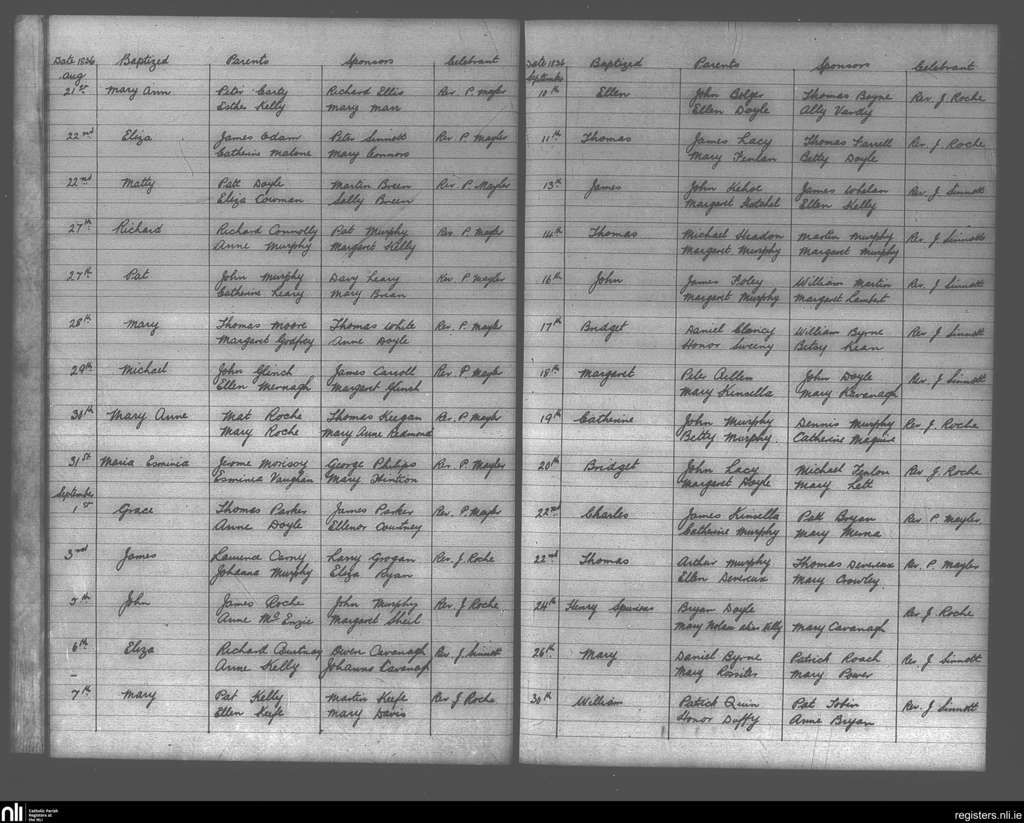 Date 1826 Baptized Parents Sponsors Celebrant
Aug
21st Mary Ann Peter Carty Richard Ellis Rev. P. Mayler
Esther Kelly Mary Marr
22nd Eliza James Odam Peter Sinnott Rev P. Mayler
Catherine Malone Mary Connors
22nd Matty Patt Doyle Martin Breen Rev P. Mayler
Eliza Cowman Sally Breen
27th Richard Richard Connolly Pat Murphy Rev. P. Mayler
Anne Murphy Margaret Kelly
27th Pat John Murphy Davy Leary Rev P. Mayler
Catherine Leary Mary Brian
28th Mary Thomas Moore Thomas White Rev. P. Mayler
Margaret Godfrey Anne Doyle
29th Michael John Glinch James Carroll Rev P. Mayler
Ellen Mernagh Margaret Glinch
30th Mary Anne Mat Roche Thomas Keegan Rev. P. Mayler
Mary Roche Mary Anne Redmond
31st Maria Esminia Jerome Morissy George Philips Rev. P. Mayler
Esminia Vaughan Mary Hinton
September
1st Grace Thomas Parker James Parker Rev. P. Mayler
Anne Doyle Ellenor Courtney
3rd James Laurence Carny Larry Grogan Rev. J. Roche
Johanna Murphy Eliza Ryan
5th John James Roche John Murphy Rev. J Roche
Anne McEnzie Margaret Sheil
6th Eliza Richard Courtnay Owen Cavanagh Rev. J. Sinnott
Anne Kelly Johanna Cavanagh
7th Mary Pat Kelly Martin Keefe Rev J. Roche
Ellen Keefe Mary Davis
Date 1826 Baptized Parents Sponsors Celebrant
September
10th Ellen John Bolger Thomas Bayne Rev. J. Roche
Ellen Doyle Ally Vardy
11th Thomas James Lacy Thomas Farrell Rev. J. Roche
Mary Fenlan Betty Doyle
13th James John Kehoe James Whelan Rev. J Sinnott
Margaret Ellen Kelly
14th Thomas Michael Headon Martin Murphy Rev. J Sinnott
Margaret Murphy Margaret Murphy
16th John James Foley William Martin Rev. J Sinnott
Margaret Murphy Margaret Lambert
17th Bridget Daniel Clancy William Byrne Rev. J Sinnott
Honor Sweeny Betsy Kean
18th Margaret Peter Cullen John Doyle Rev. J Sinnott
Mary Kinsella Mary Kavanagh
19th Catherine John Murphy Dennis Murphy Rev. J. Roche
Betty Murphy. Catherine Maguire
20th Bridget John Lacy Michael Fenlon Rev J. Roche
Margaret Doyle Mary Lett
22nd Charles James Kinsella Patt Bryan Rev P. Mayler.
Catherine Murphy Mary Merna
22nd Thomas Arthur Murphy Thomas Devereux Rev. P. Mayler
Ellen Devereux Mary Crowley.
24th Henry Spurious Bryan Doyle Rev. J Roche
Mary Nolan alias Kelly Mary Cavanagh
26th Mary Daniel Byrne Patrick Roach Rev. J Sinnott
Mary Rossiter Mary Power
30th William Patrick Quin Pat Tobin Rev. J Sinnott
Honor Duffy Anne Bryan
nli Catholic Parish
Registers at
the NLI
registers.nli.ie